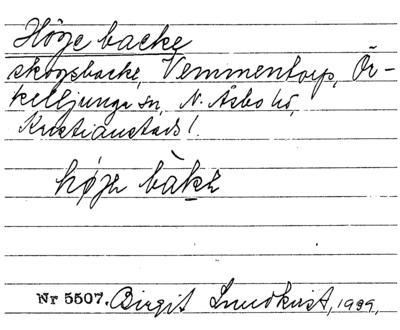 Höge backe
skogsbacke, Vemmentorp, Ör-
kelljunga sn, N. Åsbo hd,
Kristianstads l.
højə bàkə
Nr 5507. Birgit Lundkvist, 1939,